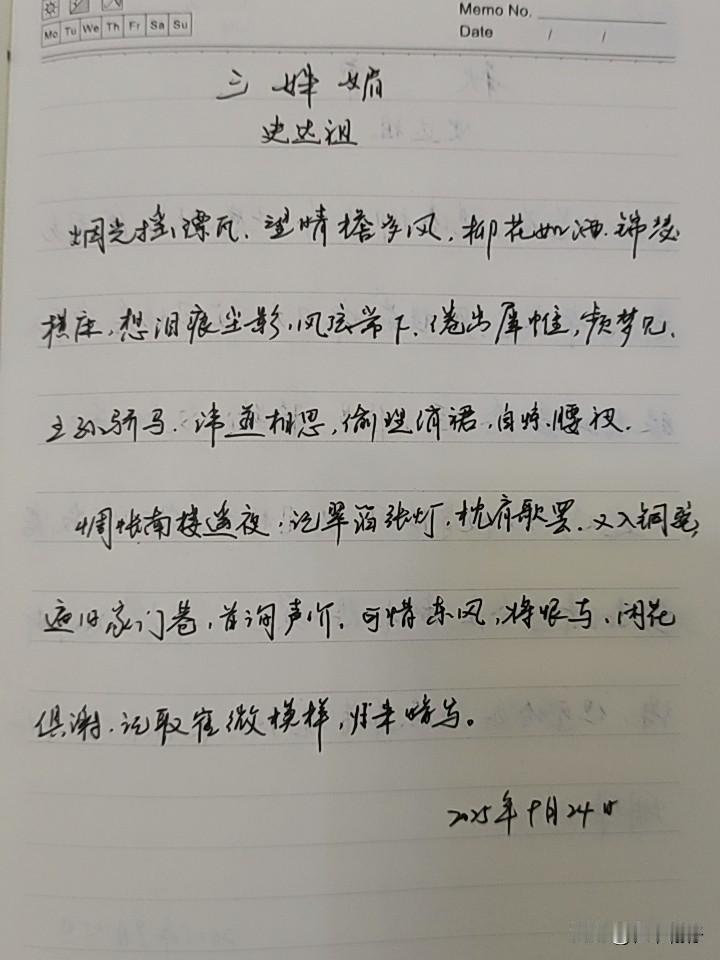 Memo No.
Mo Tu We Th Fr Sa Su
Date / /
三姝媚
史达祖
烟光摇缥瓦,望晴檐多风,柳花如洒,锦瑟
横床,想泪痕尘影,凤弦常下,倦出犀帷,频梦见,
王孙骄马,讳道相思,偷理绡裙,自惊腰衩.
惆怅南楼遥夜,记翠箔张灯,枕肩歌罢.又入铜驼,
遍旧家门巷,首询声价,可惜东风,将恨与、闲花
俱谢,记取崔徽模样,归来暗写。
2025年9月24日